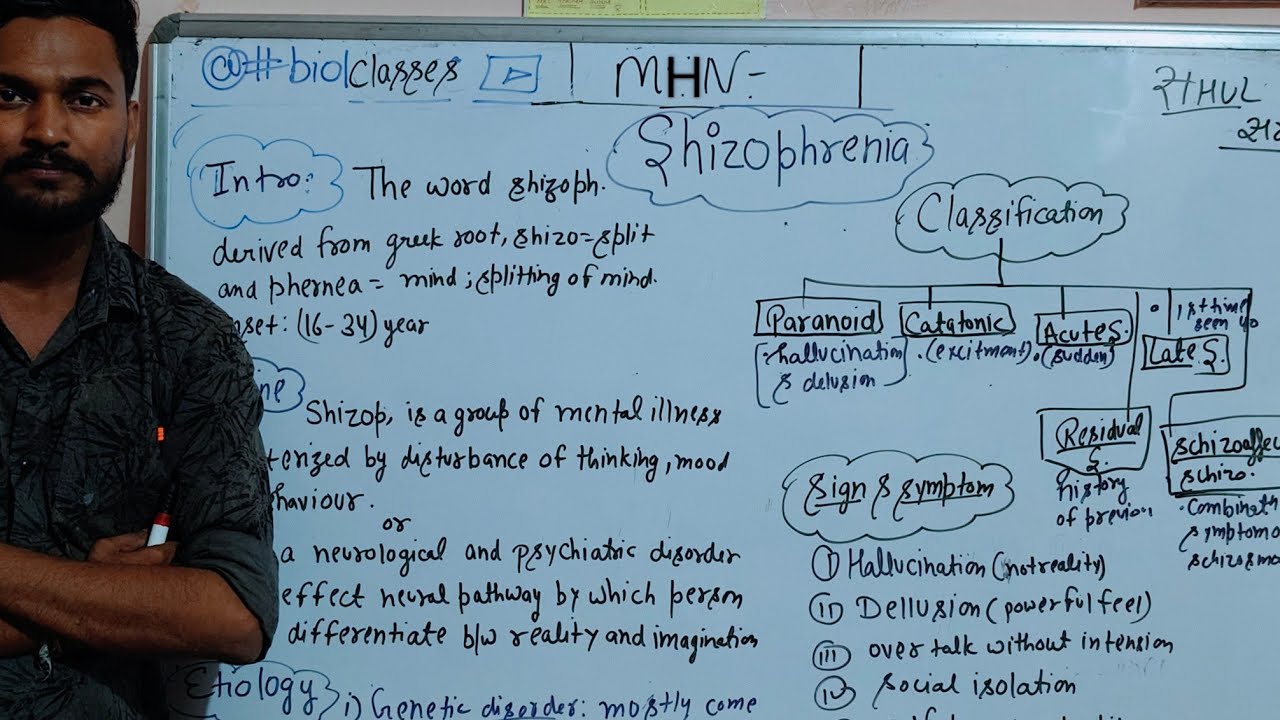 @#biolclasses
MHN-
Shizophrenia
Intro:
The word shizoph.
derived from greek root, shizo=split
and phernea = mind ; splitting of mind.
nset: (16-34) year
ne
Shizop, is a group of mental illness
terized by disturbance of thinking, mood
haviour.
or
a neurological and psychiatric disorder
effect neural pathway by which person
differentiate b/w reality and imagination
Etiology
i) Genetic disorder: mostly come
Classification
Paranoid
hallucination
& delusion
Catatonic
(excitment)
Acute S.
(sudden)
1st time
seen 40
Late S.
Residual
S.
history
of previou
schizoaffec
schizo.
Combinat
symptom o
schizo & mo
Sign & symptom
i) Hallucination (not reality)
ii) Dellusion (powerful feel)
iii) over talk without intension
iv) social isolation